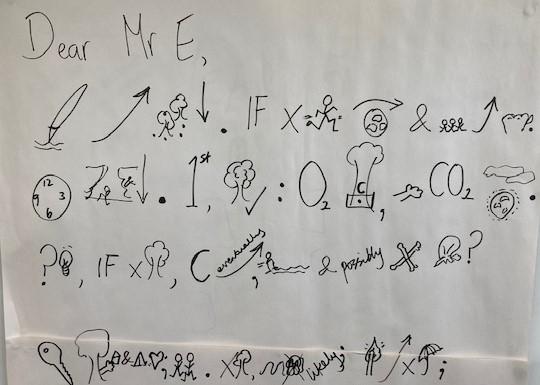 Dear Mr E,
. IF X &
12 3 6 9 . 1st, : O2 C, CO2 .
?, IF X, C eventually, & possibly X ?
& . X, likely; X ;